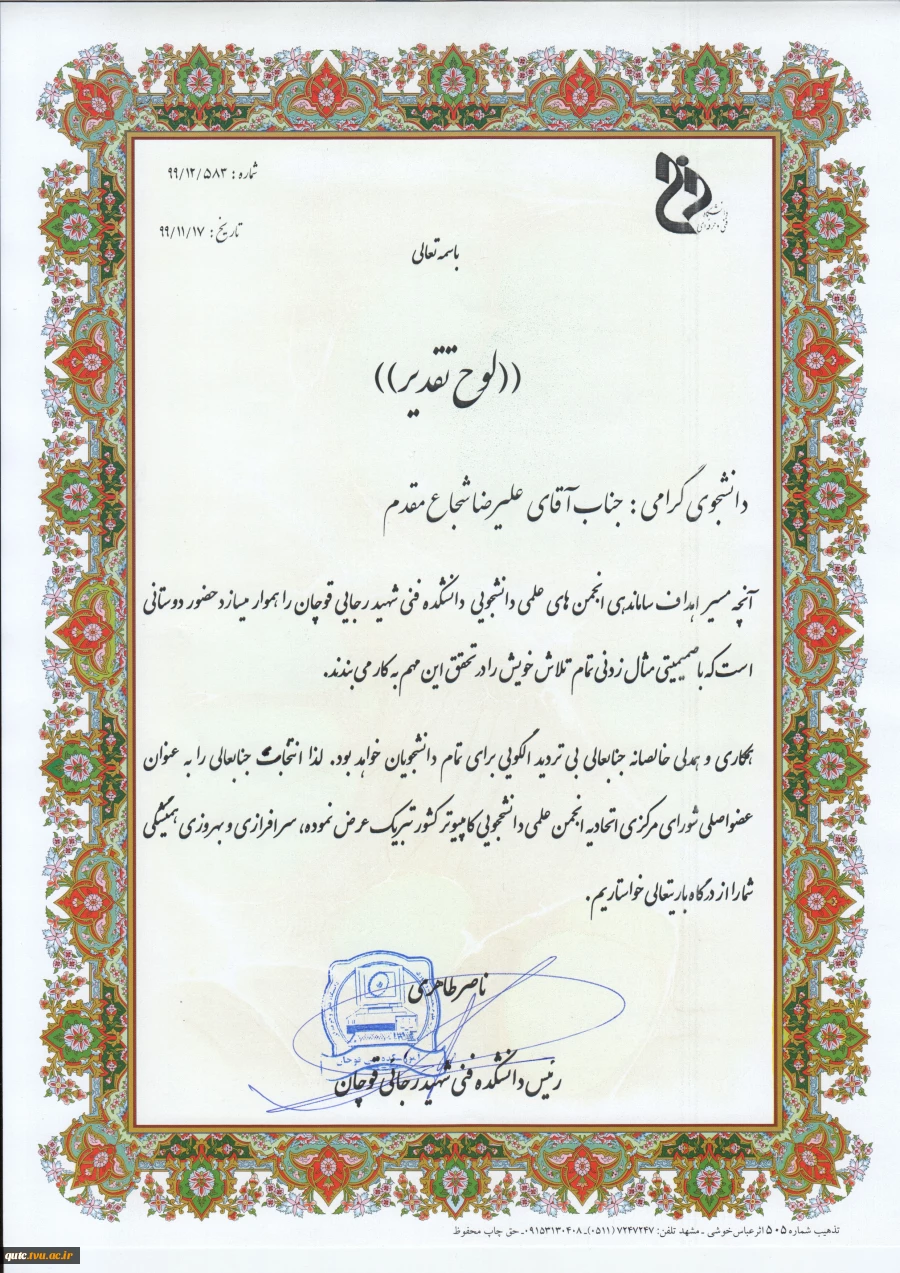 شماره: ۹۹/۱۲/۵۸۳
دانشگاه
فنی و حرفه‌ای
تاریخ: ۹۹/۱۱/۱۷
باسمه تعالی
((لوح تقدیر))
دانشجوی گرامی: جناب آقای علیرضا شجاع مقدم
آنچه مسیر اهداف ساماندهی انجمن های علمی دانشجویی دانشکده فنی شهید رجایی قوچان را هموار میسازد حضور دوستانی
است که با صمیمیتی مثال زدنی تمام تلاش خویش را در تحقق این مهم به کار می بندند.
همکاری و همدلی خالصانه جنابعالی بی تردید الگویی برای تمام دانشجویان خواهد بود. لذا انتخاب جنابعالی را به عنوان
عضو اصلی شورای مرکزی اتحادیه انجمن علمی دانشجویی کامپیوتر کشور تبریک عرض نموده، سرافرازی و بهروزی همیشگی
شما را از درگاه باریتعالی خواستاریم.
ناصر طاهری
رئیس دانشکده فنی شهید رجائی قوچان
تذهیب شماره ۵۰۵ اثر عباس خوشی ـ مشهد تلفن: ۷۲۴۷۲۴۷ (۰۵۱۱)ـ ۰۹۱۵۳۱۳۰۴۰۸ـ حق چاپ محفوظ
qutc.tvu.ac.ir